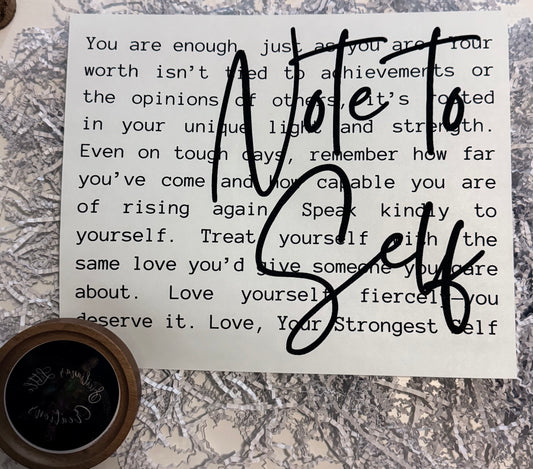 Note to
Self
You are enough, just as you are. Your
worth isn't tied to achievements or
the opinions of others, it's rooted
in your unique light and strength.
Even on tough days, remember how far
you've come and how capable you are
of rising again. Speak kindly to
yourself. Treat yourself with the
same love you'd give someone you care
about. Love yourself fiercely—you
deserve it. Love, Your Strongest Self
Little
Creations